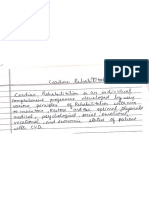 Cardiac Rehabilitation
Cardiac Rehabilitation is an individual
comprehensive programme developed by using
various principles of Rehabilitation with aim
to restore and optimal physiological
medical, psychological, social, emotional,
vocational and economic status of patient
with CVD.